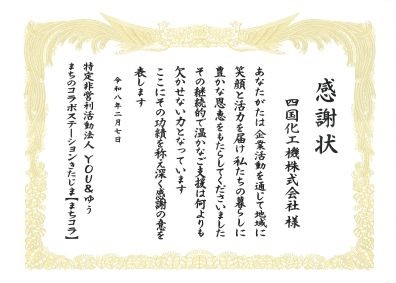 感謝状
四国化工機株式会社 様
あなたがたは企業活動を通じて地域に
笑顔と活力を届け私たちの暮らしに
豊かな恩恵をもたらしてくださいました
その継続的で温かなご支援は何よりも
欠かせない力となっています
ここにその功績を称え深く感謝の意を
表します
令和八年二月七日
特定非営利活動法人 YOU&ゆう
まちのコラボステーションきたじま【まちコラ】